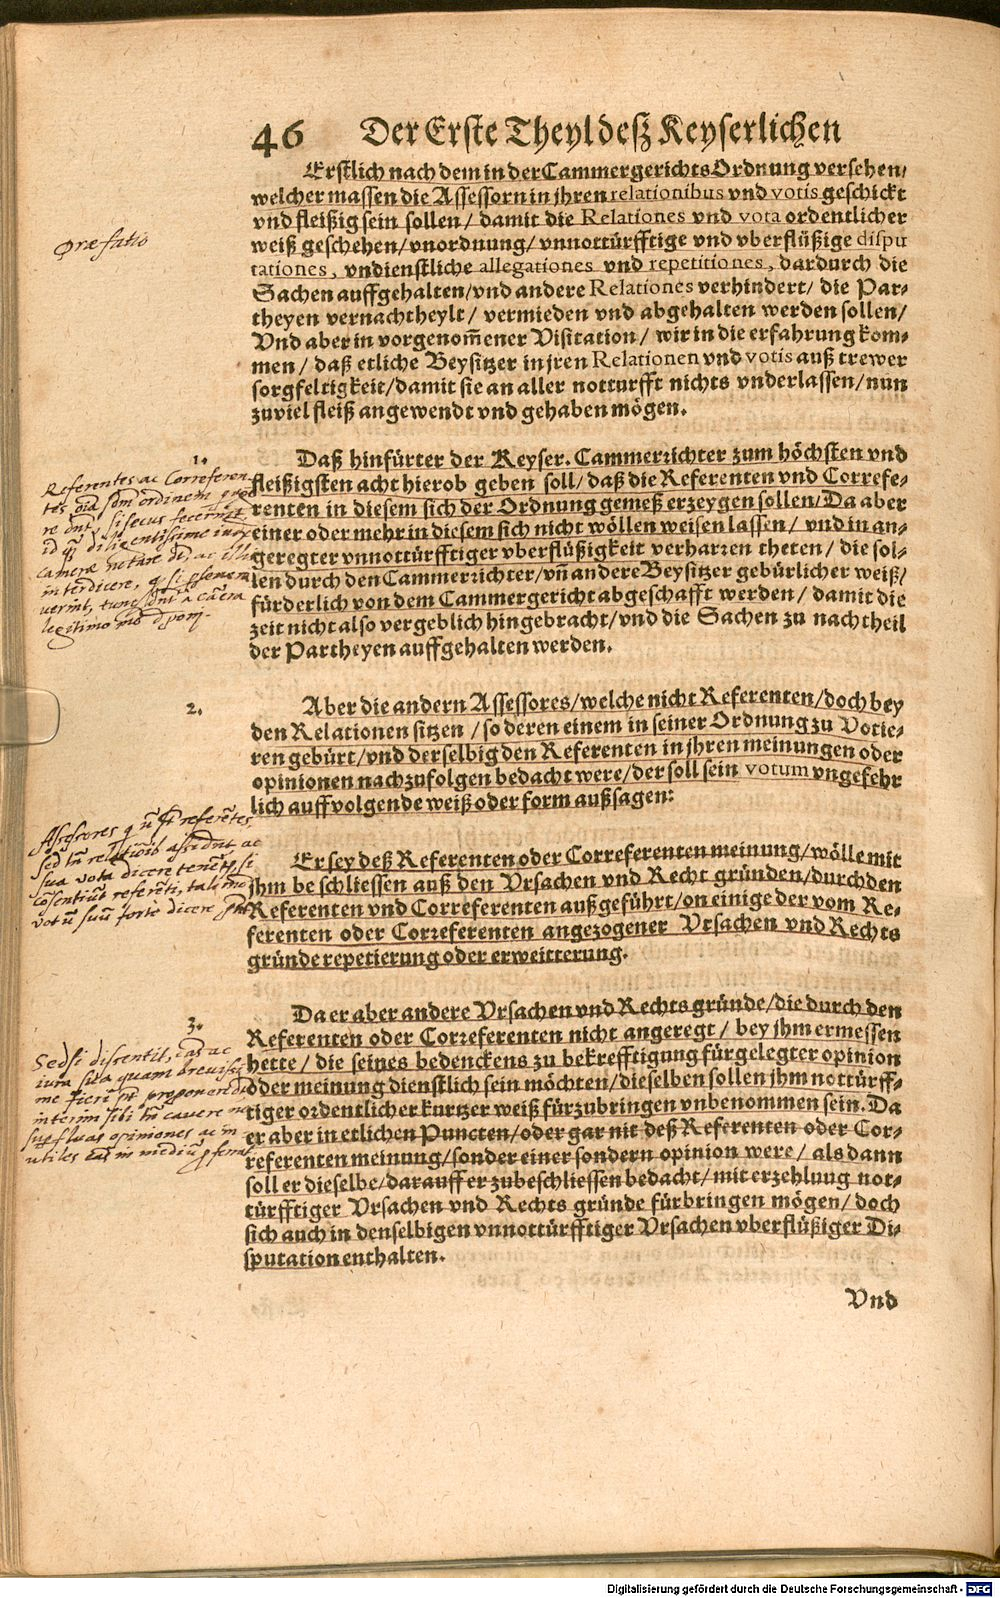 46 Der Erste Theyl deß Keyserlichen
Erstlich nach dem in der Cammergerichts Ordnung versehen/
welcher massen die Assessorn in jhren relationibus vnd votis geschickt
vnd fleißig sein sollen / damit die Relationes vnd vota ordentlicher
weiß geschehen / vnordnung / vnnottürfftige vnd vberflüßige dispu
tationes, vndienstliche allegationes vnd repetitiones, dardurch die
Sachen auffgehalten / vnd andere Relationes verhindert / die Par-
theyen vernachtheylt / vermieden vnd abgehalten werden sollen /
Vnd aber in vorgenom̃ener Visitation / wir in die erfahrung kom-
men / daß etliche Beysitzer in jren Relationen vnd votis auß trewer
sorgfeltigkeit / damit sie an aller notturfft nichts vnderlassen / nun
zuviel fleiß angewendt vnd gehaben mögen.
Præfatio
1.
Daß hinfürter der Keyser. Cammerrichter zum höchsten vnd
fleißigsten acht hierob geben soll / daß die Referenten vnd Correfe-
renten in diesem sich der Ordnung gemeß erzeygen sollen / Da aber
einer oder mehr in diesem sich nicht wöllen weisen lassen / vnd in an-
geregter vnnottürfftiger vberflüßigkeit verharren theten / die sol-
len durch den Cammerrichter / vñ andere Beysitzer gebürlicher weiß /
fürderlich von dem Cammergericht abgeschafft werden / damit die
zeit nicht also vergeblich hingebracht / vnd die Sachen zu nachtheil
der Partheyen auffgehalten werden.
Referentes ac Correferen
tes ordinem
re si secus fecerint
id diligentissime
cameræ notare ac illis
interdicere,
tunc a cam̃era
legitimo
2.
Aber die andern Assessores / welche nicht Referenten / doch bey
den Relationen sitzen / so deren einem in seiner Ordnung zu Votie-
ren gebürt / vnd derselbig den Referenten in jhren meinungen oder
opinionen nachzufolgen bedacht were / der soll sein votum vngefehr
lich auff volgende weiß oder form außsagen:
Assessores referẽtes
sed assidnt ac
sua vota dicere tenẽt, si
referẽti, tali
votũ suũ dicere
Er sey deß Referenten oder Correferenten meinung / wölle mit
jhm beschliessen auß den Vrsachen vnd Recht gründen / durch den
Referenten vnd Correferenten außgeführt / on einige der vom Re-
ferenten oder Correferenten angezogener Vrsachen vnd Rechts
gründe repetierung oder erweitterung.
3.
Da er aber andere Vrsachen vnd Rechts gründe / die durch den
Referenten oder Correferenten nicht angeregt / bey jhm ermessen
hette / die seines bedenckens zu bekrefftigung fürgelegter opinion
oder meinung dienstlich sein möchten / dieselben sollen jhm nottürff-
tiger ordentlicher kurtzer weiß fürzubringen vnbenommen sein. Da
er aber in etlichen Puncten / oder gar nit deß Referenten oder Cor-
referenten meinung / sonder einer sondern opinion were / als dann
soll er dieselbe / darauff er zubeschliessen bedacht / mit erzehlung not-
türfftiger Vrsachen vnd Rechts gründe fürbringen mögen / doch
sich auch in denselbigen vnnottürfftiger Vrsachen vberflüßiger Di-
sputation enthalten.
Sed si dissentit, ac
iura sua quam brevissi
me proponenda
interim sibi cavere
supfluas opiniones ac in
utiles in mediũ
Vnd
Digitalisierung gefördert durch die Deutsche Forschungsgemeinschaft - DFG